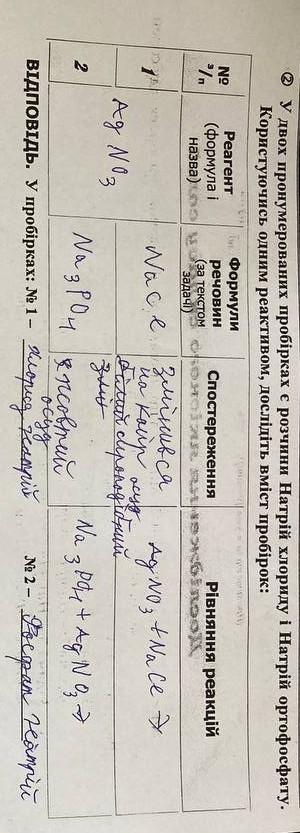 ② У двох пронумерованих пробірках є розчини Натрій хлориду і Натрій ортофосфату.
Користуючись одним реактивом, дослідіть вміст пробірок:
№
з/п
Реагент
(формула і
назва)
Формули
речовин
(за текстом
задачі)
Спостереження
Рівняння реакцій
1
AgNO3
NaCl
Змінився
на колір
білий сироподібний
AgNO3 + NaCl →
2
Na3PO4
жовтий
осуд
Na3PO4 + AgNO3 →
ВІДПОВІДЬ. У пробірках: № 1 – хлорид натрій № 2 – Фосфат натрій